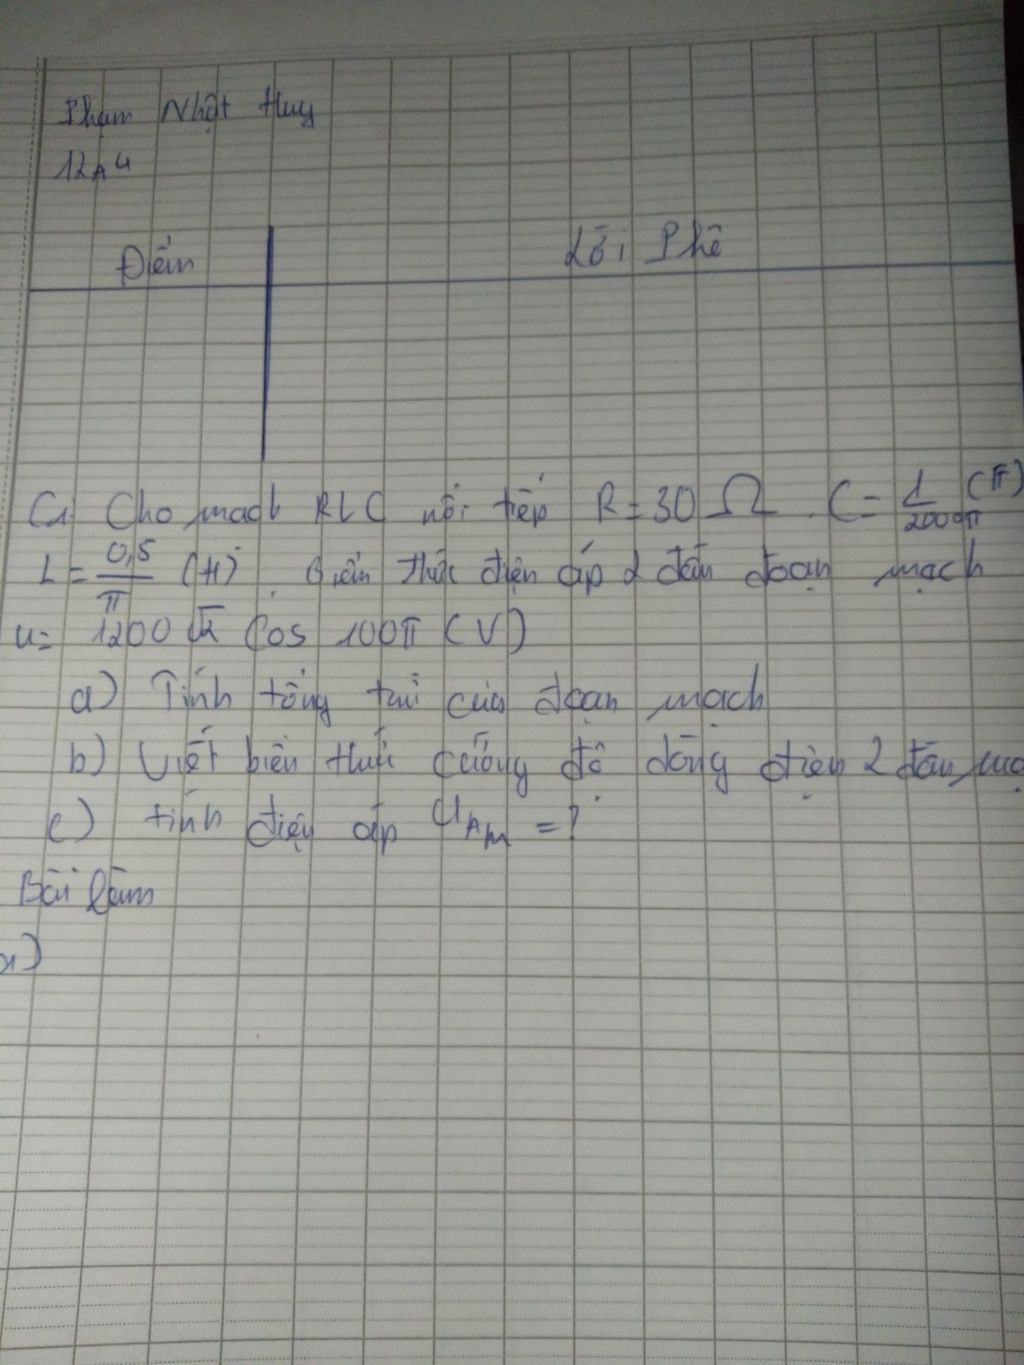 Phạm Nhật Huy
12A4
Điểm Lời Phê
C1 Cho mạch RLC nối tiếp R = 30 Ω. C = 1/2000π (F)
L = 0,5/π (H) Biểu thức điện áp 2 đầu đoạn mạch
u = 1200√2 Cos 100π (V)
a) Tính tổng trở của đoạn mạch
b) Viết biển thức cường độ dòng điện 2 đầu mạ
c) tính điện áp UAM = ?
Bài làm
a)